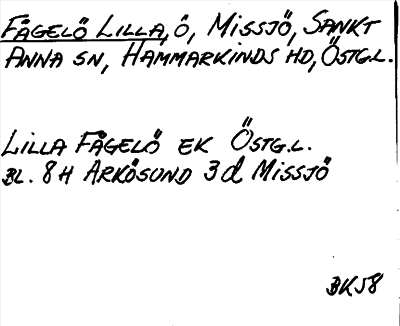 FÅGELÖ LILLA, Ö, MISSJÖ, SANKT
ANNA SN, HAMMARKINDS HD, ÖSTG.L.
LILLA FÅGELÖ EK ÖSTG.L.
BL. 8H ARKÖSUND 3d MISSJÖ
BKJ8